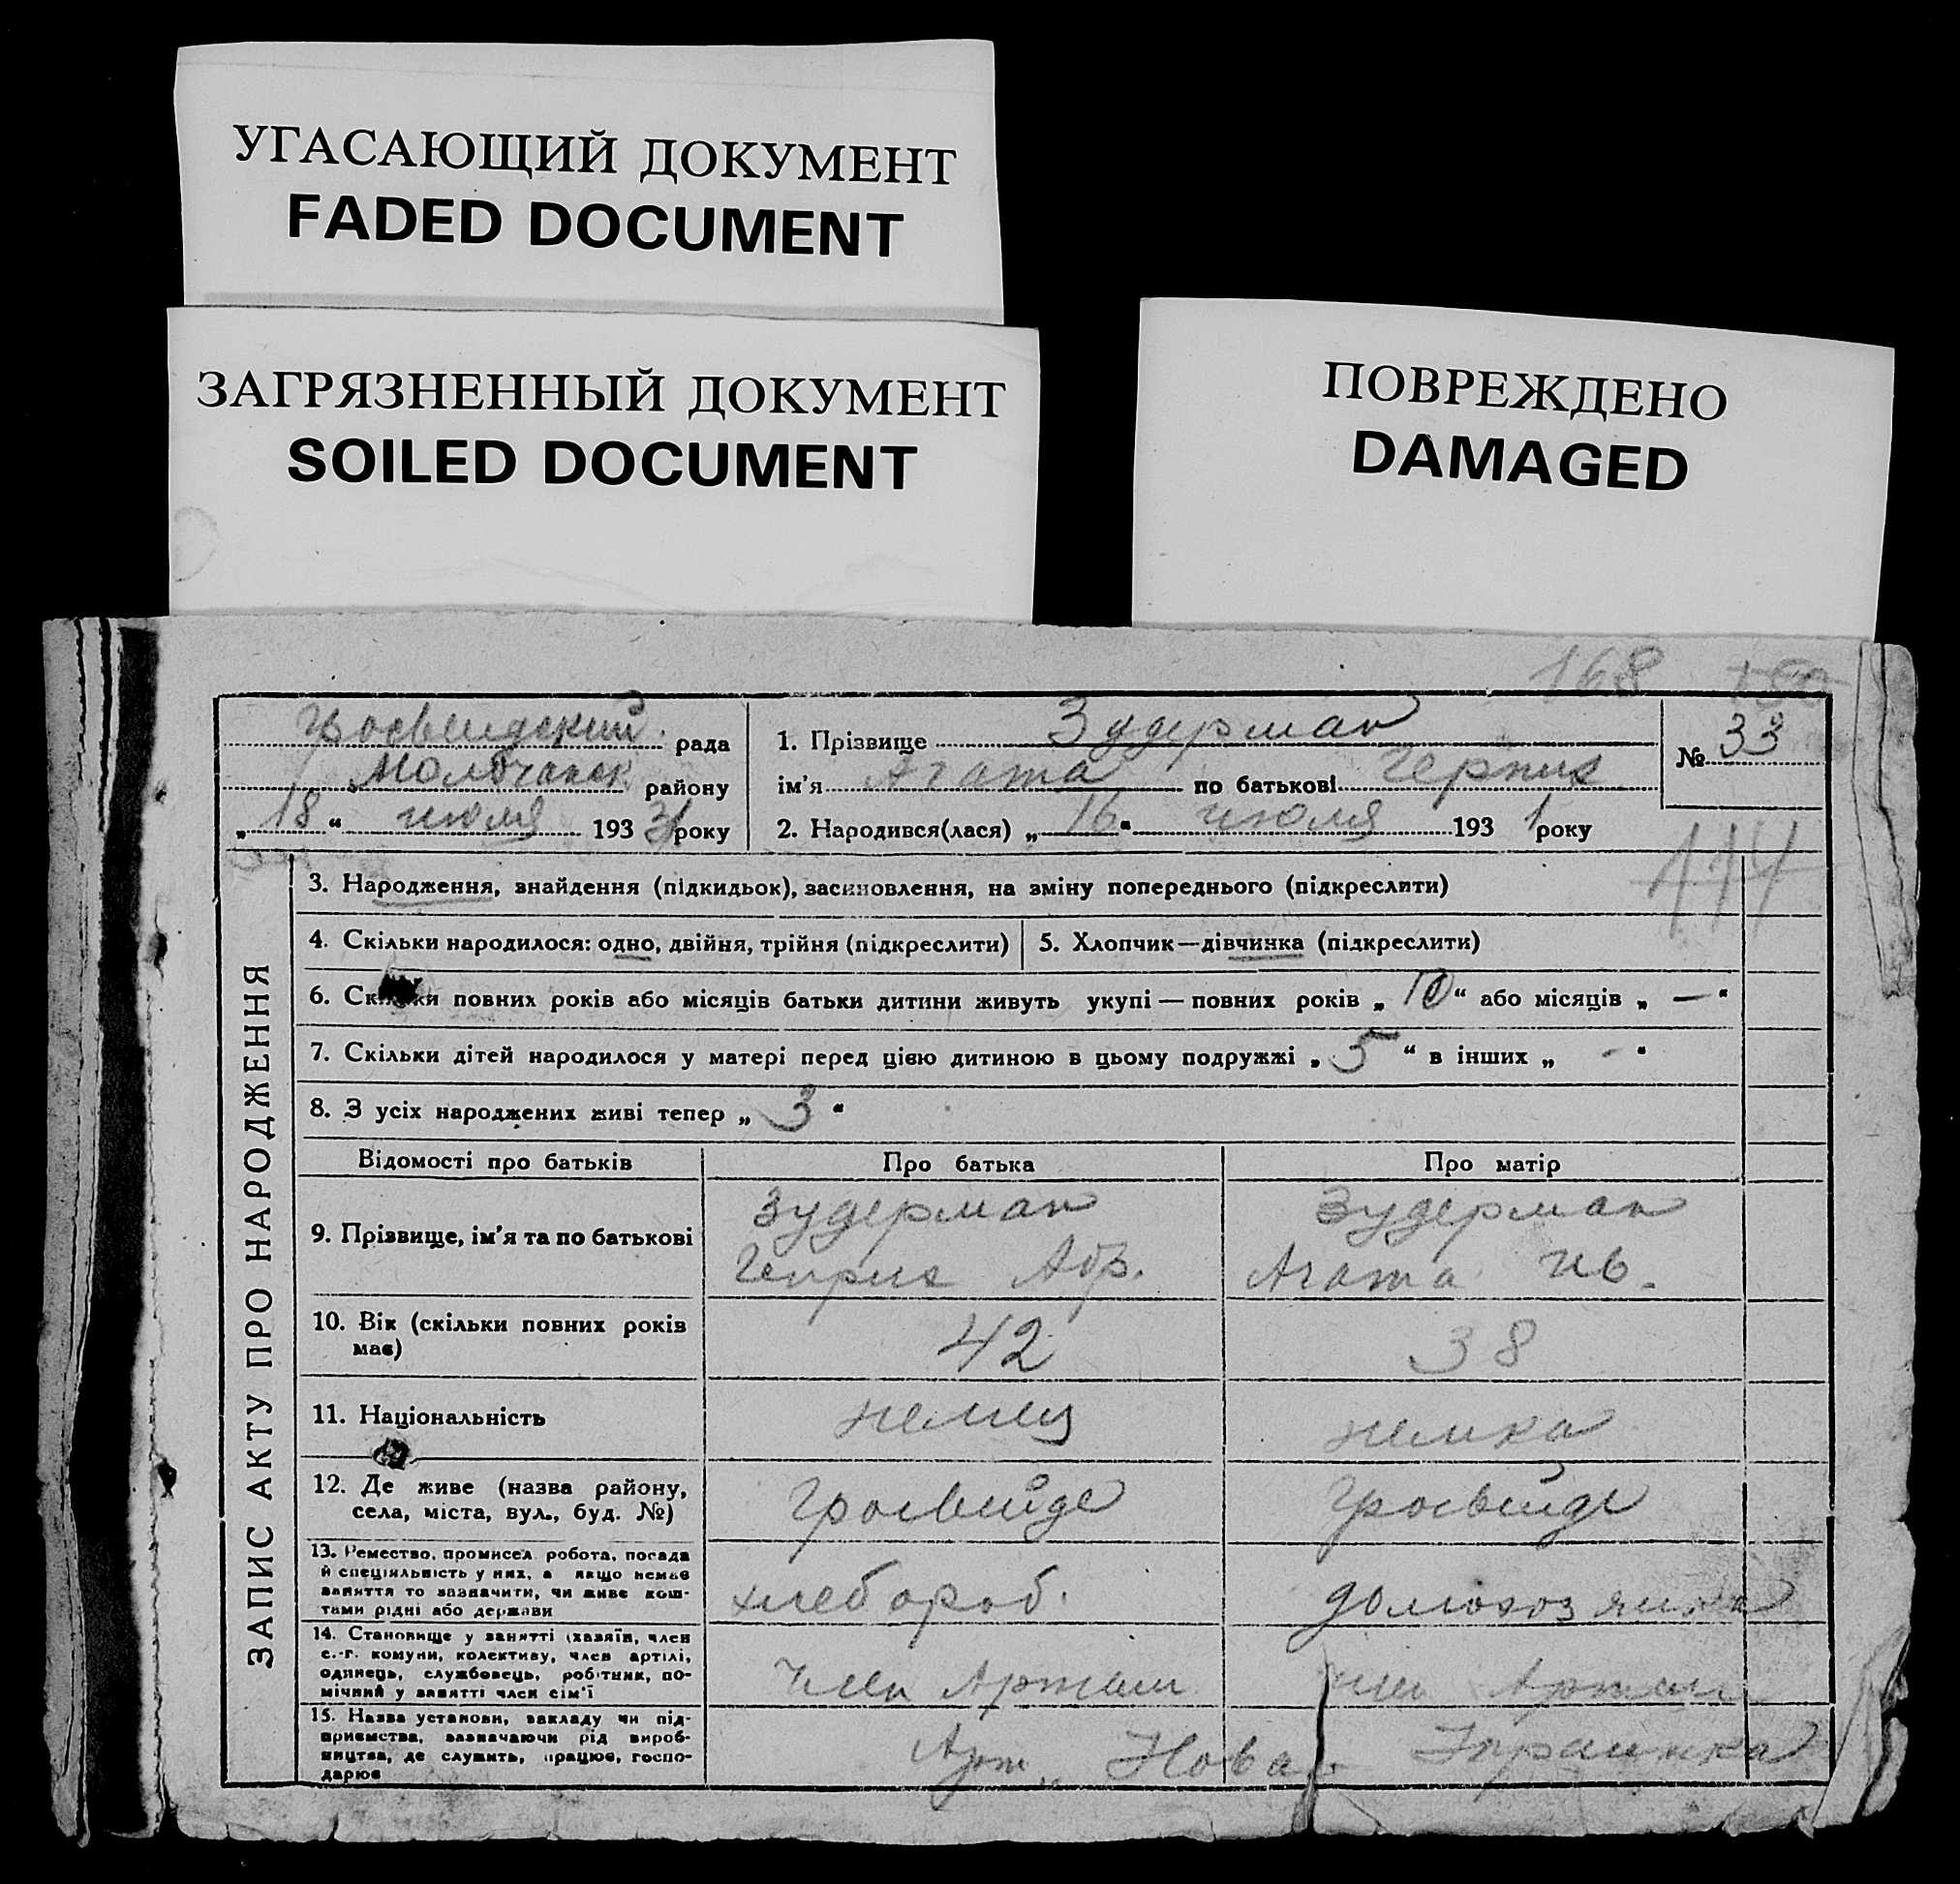 УГАСАЮЩИЙ ДОКУМЕНТ
FADED DOCUMENT
ЗАГРЯЗНЕННЫЙ ДОКУМЕНТ
SOILED DOCUMENT
ПОВРЕЖДЕНО
DAMAGED
168
Гросвейдский рада
Молочанск району
„18“ июля 1931 року
1. Прізвище Зудерман
ім'я Агата по батькові
2. Народився(лася) „16“ июля 1931 року
№ 33
114
ЗАПИС АКТУ ПРО НАРОДЖЕННЯ
3. Народження, знайдення (підкидьок), засиновлення, на зміну попереднього (підкреслити)
4. Скільки народилося: одно, двійня, трійня (підкреслити)
5. Хлопчик—дівчинка (підкреслити)
6. Скільки повних років або місяців батьки дитини живуть укупі — повних років „10“ або місяців „—“
7. Скільки дітей народилося у матері перед цією дитиною в цьому подружжі „5“ в інших „-“
8. З усіх народжених живі тепер „3“
Відомості про батьків Про батька Про матір
9. Прізвище, ім'я та по батькові
Зудерман
Генрих Абр.
Зудерман
Агата Ив.
10. Вік (скільки повних років
має)
42
38
11. Національність
немец
немка
12. Де живе (назва району,
села, міста, вул., буд. №)
Гросвейде
Гросвейде
13. Ремество, промисел, робота, посада
й спеціяльність у них, а якщо немає
заняття то зазначити, чи живе кош-
тами рідні або держави
хлебороб.
домохозяйка
14. Становище у занятті (хазяїн, член
с.-г. комуни, колективу, член артілі,
одинець, службовець, робітник, по-
мічний у занятті член сім'ї
Член Артели
член Артели
15. Назва установи, закладу чи під-
приємства, зазначаючи рід вироб-
ництва, де служить, працює, госпо-
дарює
Арт. Нова